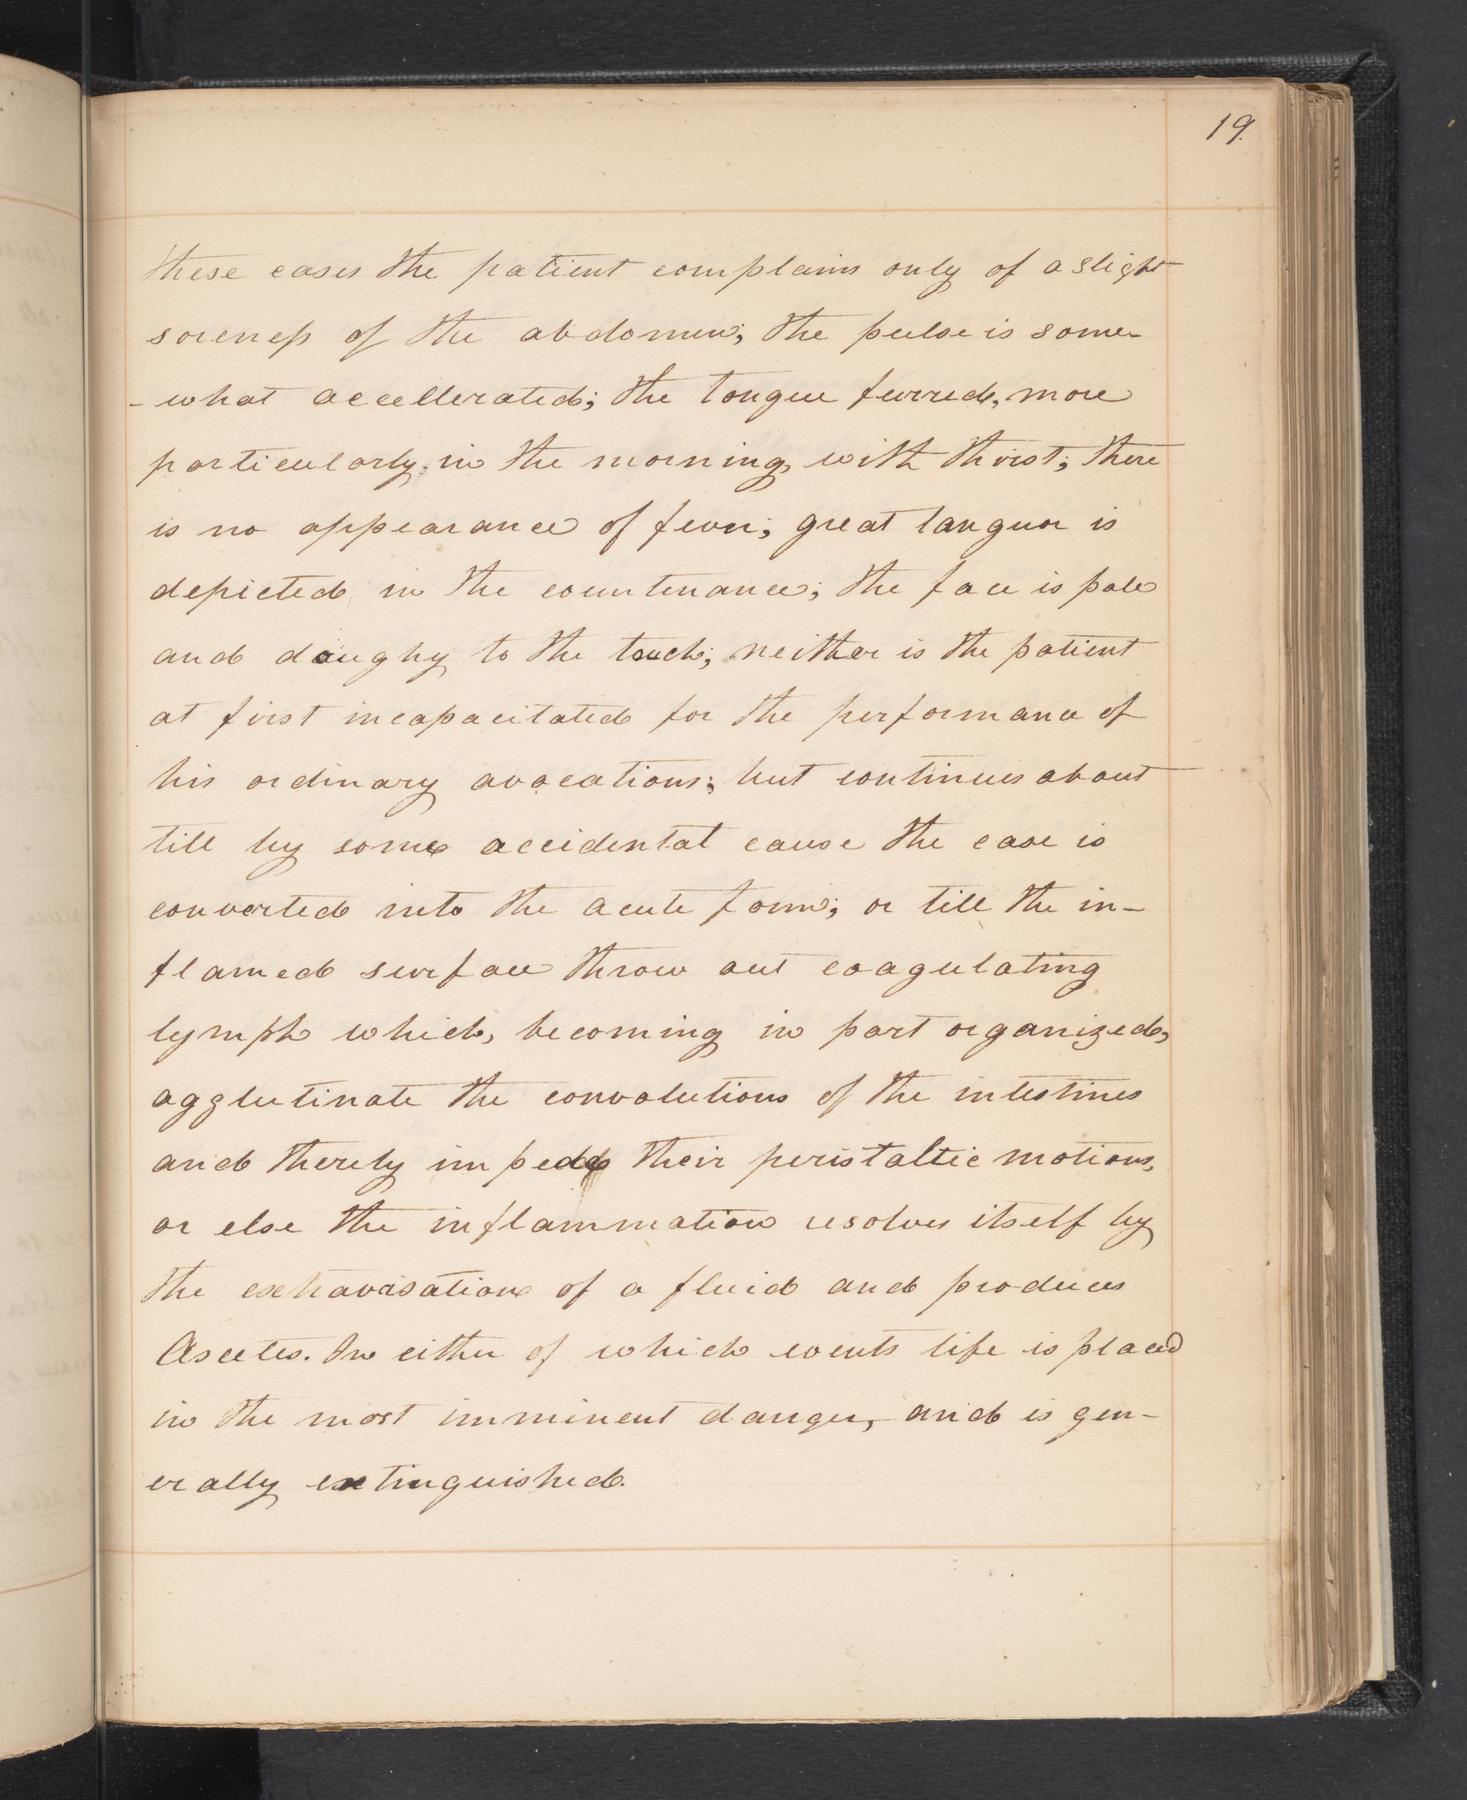 19.
these cases the patient complains only of a slight
soreness of the abdomen; the pulse is some-
-what accellerated; the tongue furred, more
particularly in the morning, with thirst; there
is no appearance of fever; great languor is
depicted in the countenance; the face is pale
and doughy to the touch; neither is the patient
at first incapacitated for the performance of
his ordinary avocations; but continues about
till by some accidental cause the case is
converted into the acute form; or till the in-
flamed surface throw out coagulating
lymph which, becoming in part organized,
agglutinate the convolutions of the intestines
and thereby impede their peristaltic motions,
or else the inflammation resolves itself by
the extravasation of a fluid and produces
Ascetes. In either of which events life is placed
in the most imminent danger, and is gen-
erally extinguished.